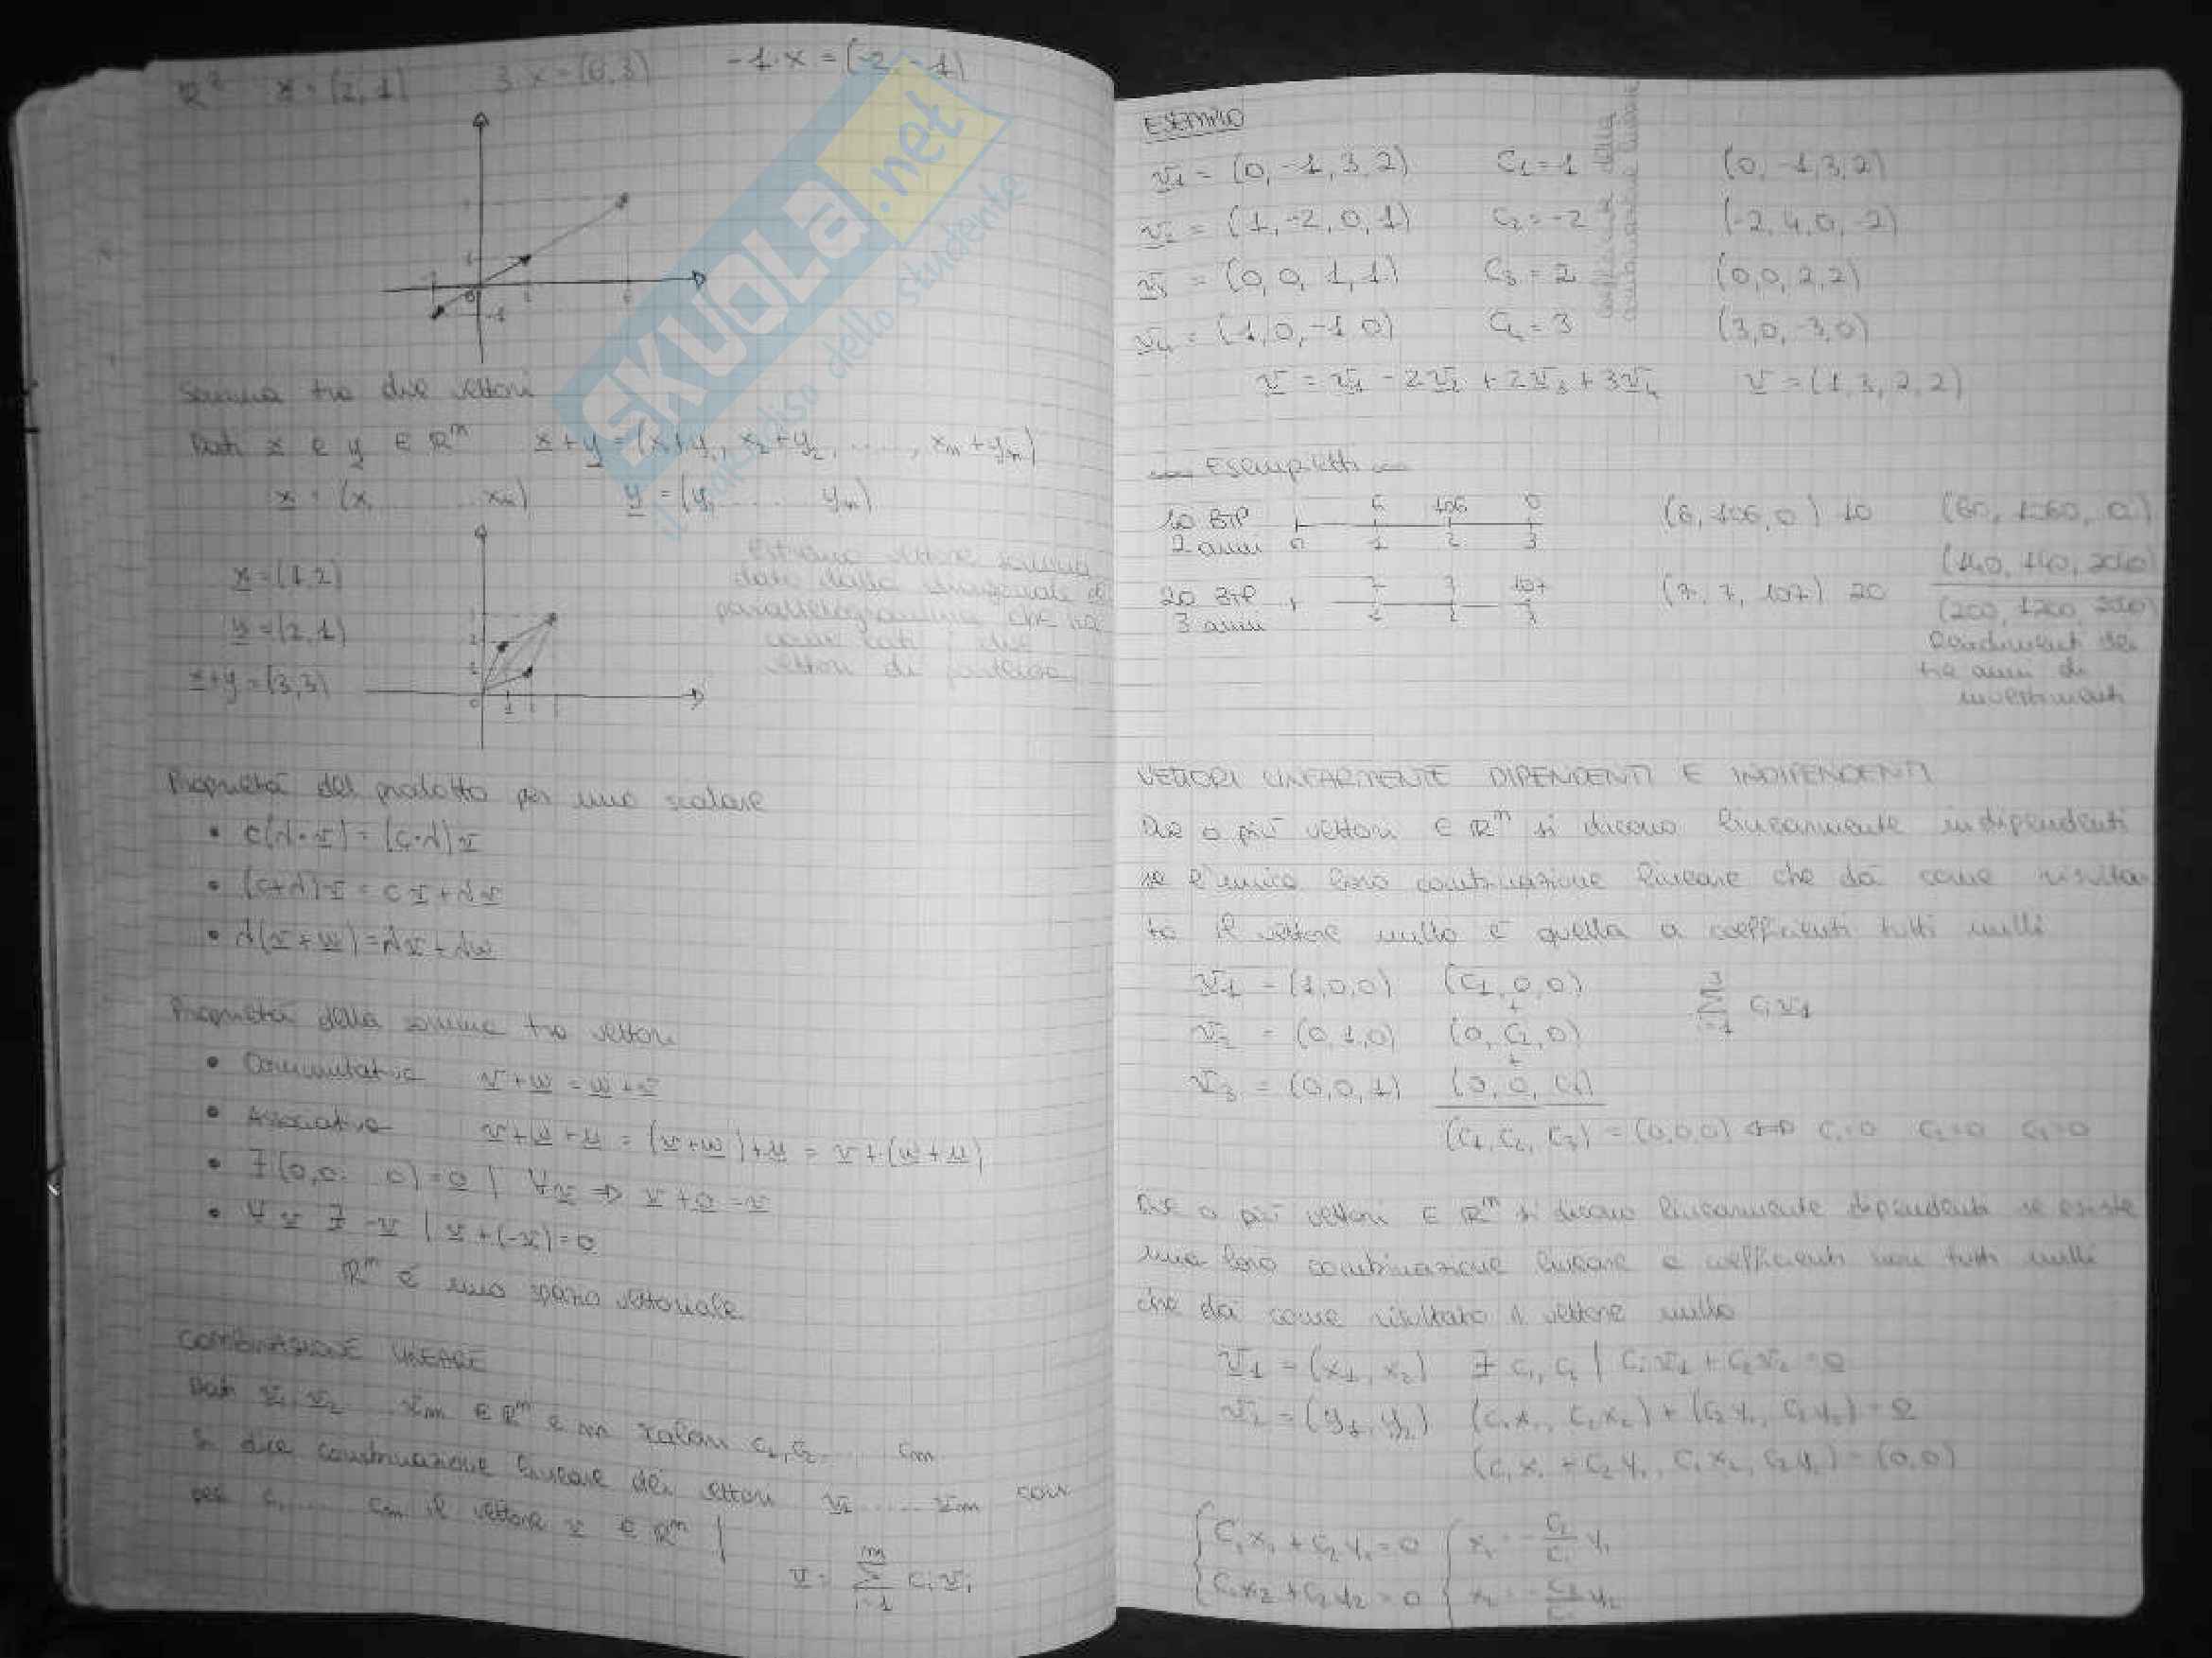 ℝ² x = (2, 1) 3·x = (6, 3) -1·x = (-2, -1)
Somma tra due vettori
Dati x e y ∈ ℝⁿ x+y = (x₁+y₁, x₂+y₂, ....., xₙ+yₙ)
x = (x₁ ... xₙ) y = (y₁ ..... yₙ)
x = (1,2)
y = (2,1)
x+y = (3,3)
vettore somma
dato dalla diagonale del
parallelogramma che ha
come lati i due
vettori di partenza
Proprietà del prodotto per uno scalare
• c(d·v) = (c·d)v
• (c+d)v = cv + dv
• d(v+w) = dv + dw
Proprietà della somma tra vettori
• Commutativa v+w = w+v
• Associativa v+w+u = (v+w)+u = v+(w+u)
• ∃ (0,0. 0) = 0 | ∀v ⇒ v+0 = v
• ∀ v ∃ -v | v+(-v) = 0
ℝⁿ è uno spazio vettoriale
COMBINAZIONE LINEARE
Dati v₁, v₂ ... vₘ ∈ ℝⁿ e m scalari c₁, c₂ ... cₘ
Si dice combinazione lineare dei vettori v₁ .... vₘ con
pesi c₁ .... cₘ il vettore v ∈ ℝⁿ |
v = Σ cᵢvᵢ
m
i=1
SKUOLA.net
il paradiso dello studente
ESEMPIO
v₁ = (0, -1, 3, 2) C₁ = 1 (0, -1, 3, 2)
v₂ = (1, -2, 0, 1) C₂ = -2 (-2, 4, 0, -2)
v₃ = (0, 0, 1, 1) C₃ = 2 (0, 0, 2, 2)
v₄ = (1, 0, -1, 0) C₄ = 3 (3, 0, -3, 0)
coefficienti della
combinazione lineare
v = v₁ - 2v₂ + 2v₃ + 3v₄ v = (1, 3, 2, 2)
Esempietti
10 BTP 6 106 0 (6, 106, 0) 10 (60, 1060, 0)
2 anni 0 1 2 3
20 BTP 7 7 107 (7, 7, 107) 20 (140, 140, 2140)
3 anni 1 2 3
Rendimenti dei
tre anni di
investimenti
VETTORI LINEARMENTE DIPENDENTI E INDIPENDENTI
Due o più vettori ∈ ℝⁿ si dicono linearmente indipendenti
se l'unica loro combinazione lineare che dà come risulta
to il vettore nullo è quella a coefficienti tutti nulli
v₁ = (1,0,0) (C₁, 0, 0)
+
v₂ = (0,1,0) (0, C₂, 0)
+
v₃ = (0,0,1) (0, 0, C₃)
3
Σ cᵢv₁
i=1
(C₁, C₂, C₃) = (0,0,0) ⇔ C₁=0 C₂=0 C₃=0
Due o più vettori ∈ ℝⁿ si dicono linearmente dipendenti se esiste
una loro combinazione lineare a coefficienti non tutti nulli
che dai come risultato il vettore nullo
v₁ = (x₁, x₂) ∃ c₁, c₂ | c₁v₁ + c₂v₂ = 0
v₂ = (y₁, y₂) (c₁x₁, c₁x₂) + (c₂y₁, c₂y₂) = 0
(c₁x₁ + c₂y₁, c₁x₂, c₂y₂) = (0,0)
{C₁x₁ + C₂y₁ = 0 {x₁ = -C₂/C₁ y₁
{C₁x₂ + C₂y₂ = 0 {x₂ = -C₂/C₁ y₂